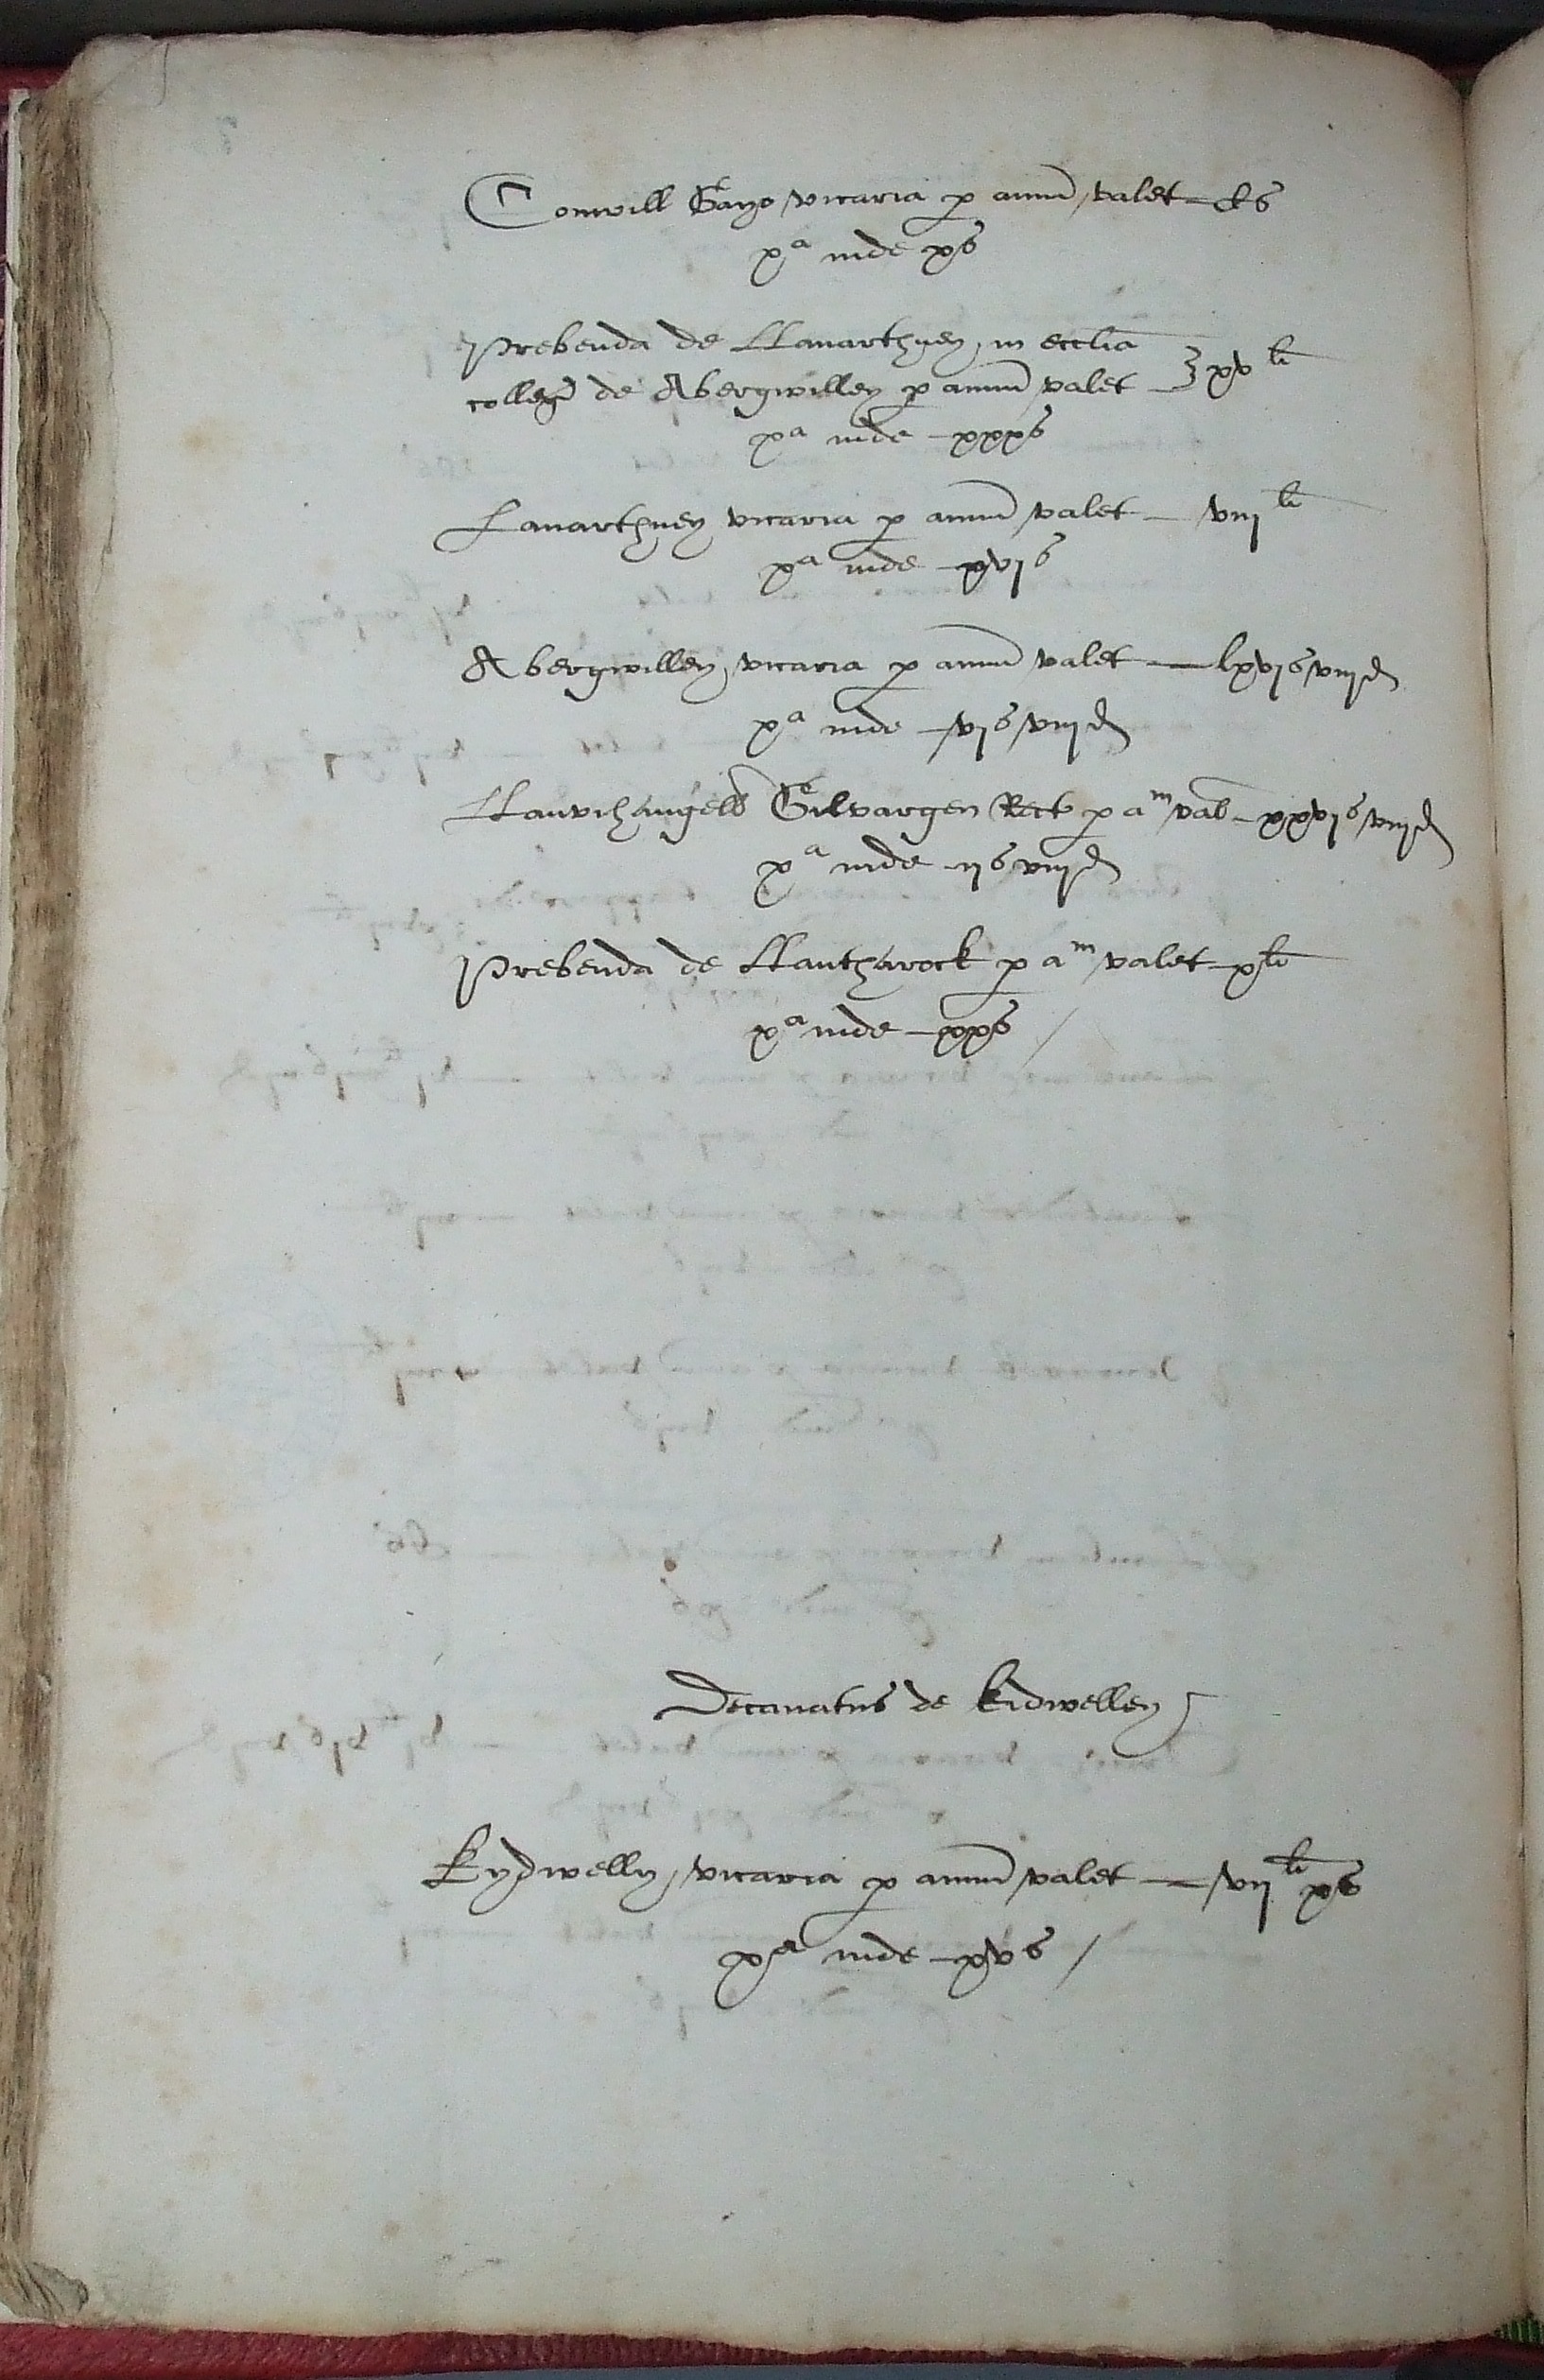 Conwill Gayo vicaria p annu valet – Cs
xa inde xs
Prebenda de LLanarthney in ecclia
colleg de Abergwilley p annu valet – xvli
xa inde – xxxs
Lanarthney vicaria p annu valet – viijli
xa inde – xvjs
Abergwilley vicaria p annu valet – lxvjs viijd
xa inde – vjs viijd
LLanvihangell Gilvargen Rect p am val – xxvjs viijd
xa inde – ijs viijd
Prebenda de LLantharock p am valet – xli
xa inde – xxs /
Decanatus de Kidwelley
Kydwelly vicaria p annu valet – vijli xs
xa inde – xvs /